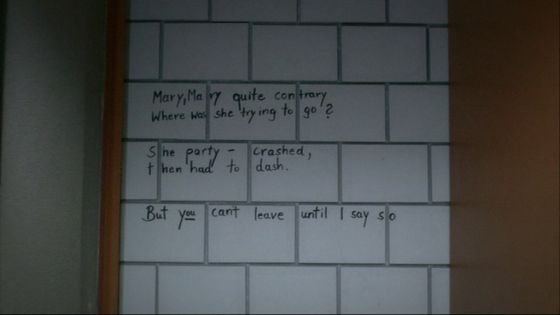 Mary, Mary quite contrary
Where was she trying to go?
She party - crashed,
then had to dash.
But you cant leave until I say so